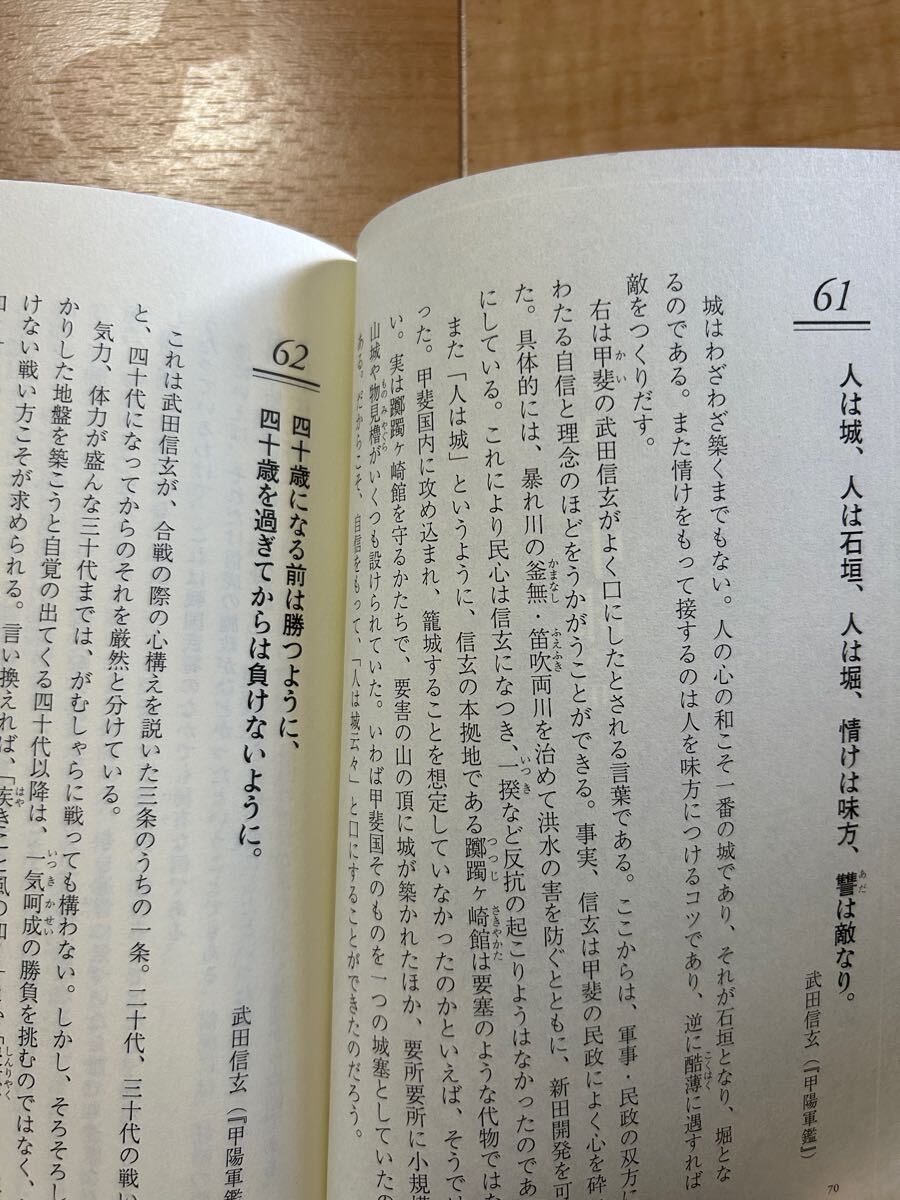 61
人は城、人は石垣、人は堀、情けは味方、讐は敵なり。
武田信玄(『甲陽軍鑑』)
城はわざわざ築くまでもない。人の心の和こそ一番の城であり、それが石垣となり、堀とな
るのである。また情けをもって接するのは人を味方につけるコツであり、逆に酷薄に遇すれば
敵をつくりだす。
右は甲斐の武田信玄がよく口にしたとされる言葉である。ここからは、軍事・民政の双方に
わたる自信と理念のほどをうかがうことができる。事実、信玄は甲斐の民政によく心を砕
た。具体的には、暴れ川の釜無・笛吹両川を治めて洪水の害を防ぐとともに、新田開発を可
にしている。これにより民心は信玄になつき、一揆など反抗の起こりようはなかったのであ
また「人は城」というように、信玄の本拠地である躑躅ヶ崎館は要塞のような代物ではな
った。甲斐国内に攻め込まれ、籠城することを想定していなかったのかといえば、そうでは
い。実は躑躅ヶ崎館を守るかたちで、要害の山の頂に城が築かれたほか、要所要所に小規模
山城や物見櫓がいくつも設けられていた。いわば甲斐国そのものを一つの城塞としていたの
ある。だからこそ、自信をもって、「人は城云々」と口にすることができたのだろう。
70
62
四十歳になる前は勝つように、
四十歳を過ぎてからは負けないように。
武田信玄(『甲陽軍鑑
これは武田信玄が、合戦の際の心構えを説いた三条のうちの一条。二十代、三十代の戦い
と、四十代になってからのそれを厳然と分けている。
気力、体力が盛んな三十代までは、がむしゃらに戦っても構わない。しかし、そろそろし
かりした地盤を築こうと自覚の出てくる四十代以降は、一気呵成の勝負を挑むのではなく、
けない戦い方こそが求められる。言い換えれば、「疾きこと風の如